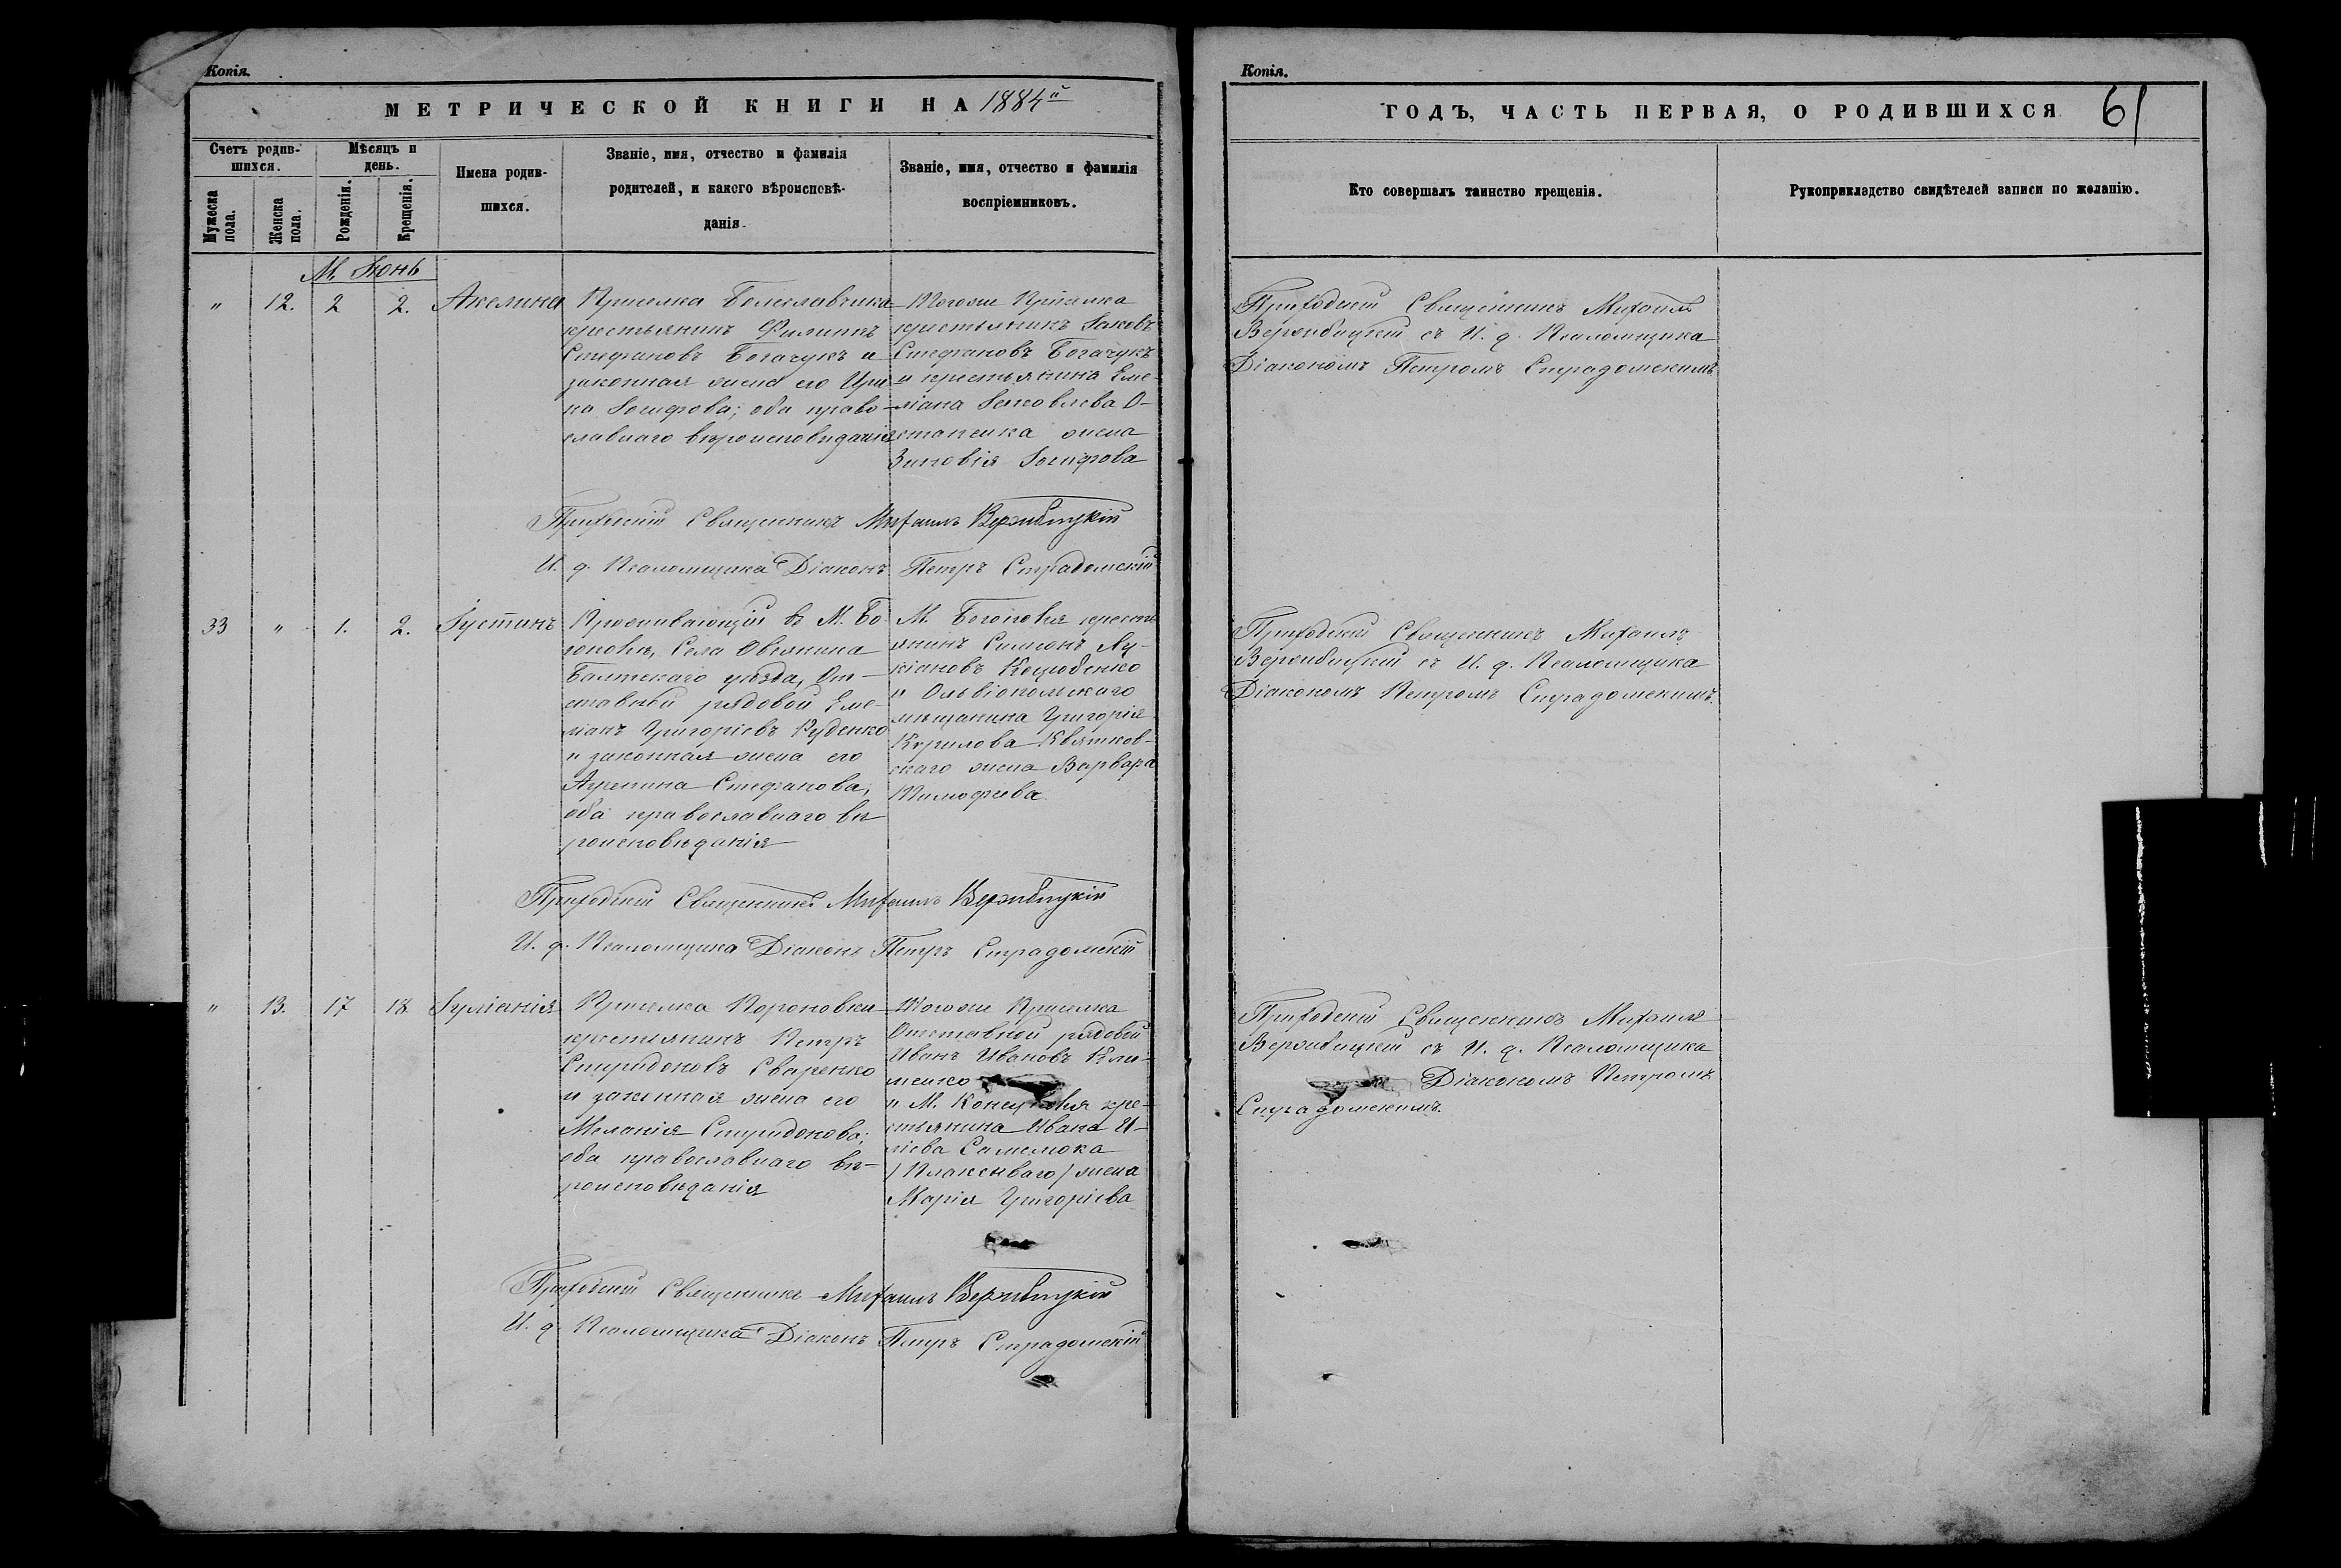 Копія.
МЕТРИЧЕСКОЙ КНИГИ НА 1884й
Счетъ родив-
шихся.
Мѣсяцъ и
день.
Имена родив-
шихся.
Званіе, имя, отчество и фамилія
родителей, и какого вѣроисповѣ-
данія.
Званіе, имя, отчество и фамилія
воспріемниковъ.
Мужеска
пола.
Женска
пола.
Рожденія.
Крещенія.
М. Іюнь
" 12. 2 2. Акелина
Приселка Болеславчика
крестьянинъ Филиппъ
Стефановъ Богачукъ и
законная жена его Ири-
на Іосифова; оба право-
славнаго вѣроисповѣданія
Тогоже Приселка
крестьянинъ Іаковъ
Стефановъ Богачукъ
и крестьянина Еме-
ліана Іаковлева О-
стапенка жена
Зиновія Іосифова
Приходскій Священникъ Михаилъ Вержбицкій
И. д. Псаломщика Діаконъ Петръ Страдомскій
33 " 1. 2. Іустинъ
Проживающій в М. Бо-
гополѣ, Села
Балтскаго уѣзда, От-
ставный рядовой Еме-
ліанъ Григоріевъ Руденко
и законная жена его
Стефанова;
оба православнаго вѣ-
роисповѣданія
М. Богополя кресть-
янинъ Симеонъ Лу-
кіановъ Коцюбенко
и Ольвіопольскаго
мѣщанина Григорія
Кирилова Квятков-
скаго жена Варвара
Тимофеева
Приходскій Священникъ Михаилъ Вержбицкій
И. д. Псаломщика Діаконъ Петръ Страдомскій
" 13. 17 18. Іуліанія
Приселка
крестьянинъ Петръ
Спиридоновъ Сваренко
и законная жена его
Меланія Спиридонова;
оба православнаго вѣ-
роисповѣданія
Тогоже Приселка
Отставной рядовой
Иванъ Ивановъ Кли-
менко
и М. кре-
стьянина Ивана И-
ліева
жена
Марія Григоріева
Приходскій Священникъ Михаилъ Вержбицкій
И. д. Псаломщика Діаконъ Петръ Страдомскій
Копія.
ГОДЪ, ЧАСТЬ ПЕРВАЯ, О РОДИВШИХСЯ
61
Кто совершалъ таинство крещенія.
Рукоприкладство свидѣтелей записи по желанію.
Приходскій Священникъ Михаилъ
Вержбицкій съ И. д. Псаломщика
Діакономъ Петромъ Страдомскимъ
Приходскій Священникъ Михаилъ
Вержбицкій съ И. д. Псаломщика
Діакономъ Петромъ Страдомскимъ.
Приходскій Священникъ Михаилъ
Вержбицкій съ И. д. Псаломщика
Діакономъ Петромъ
Страдомскимъ.